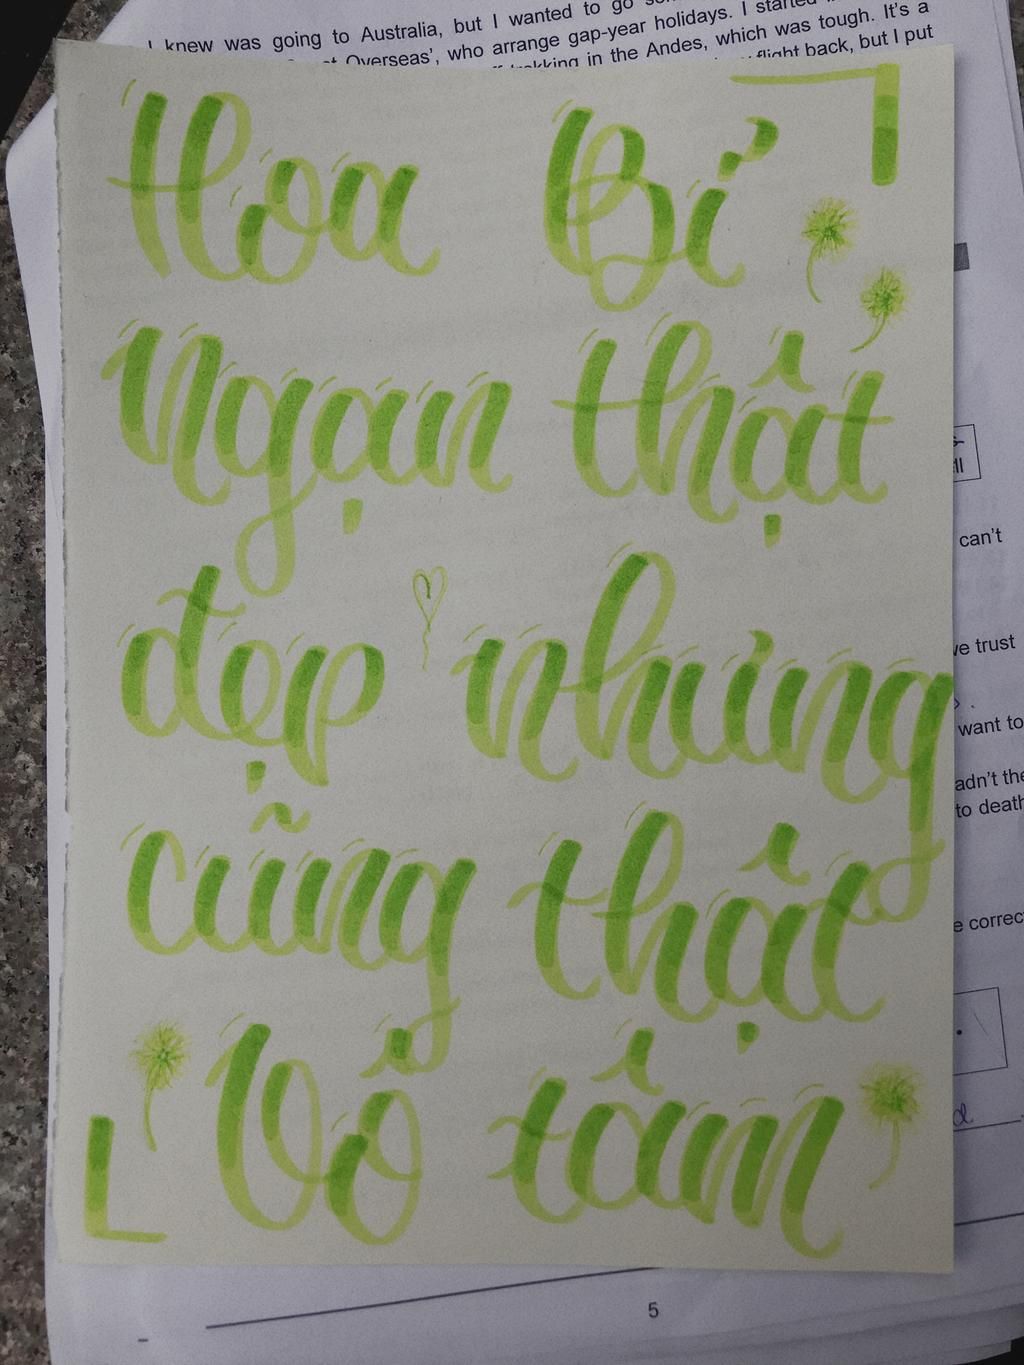 I knew was going to Australia, but I wanted to go
Overseas', who arrange gap-year holidays. I started
trekking in the Andes, which was tough. It's a
flight back, but I put
Hoa Bỉ
ngạn thật
đẹp nhưng
cũng thật
Vô tâm
can't
ve trust
want to
adn't the
to death
e correc
5